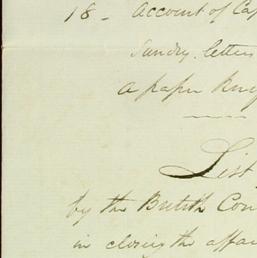 18 - Account of Cap
Sundry letters
a paper
List
by the British Con
in closing the affai